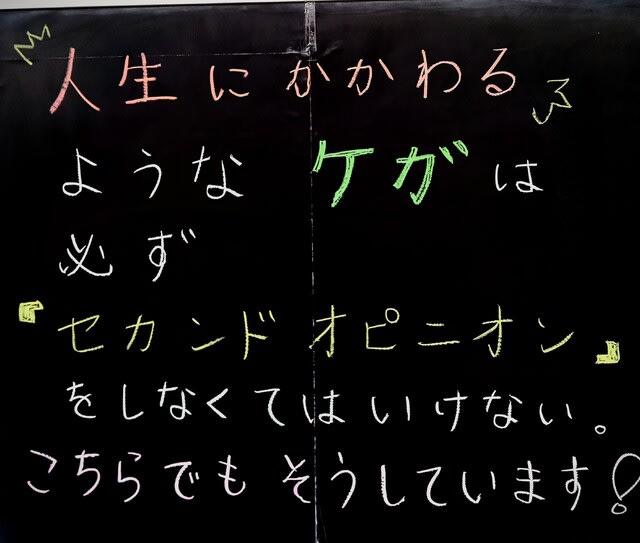 人生にかかわる
ようなケガは
必ず
『セカンドオピニオン』
をしなくてはいけない。
こちらでもそうしています!